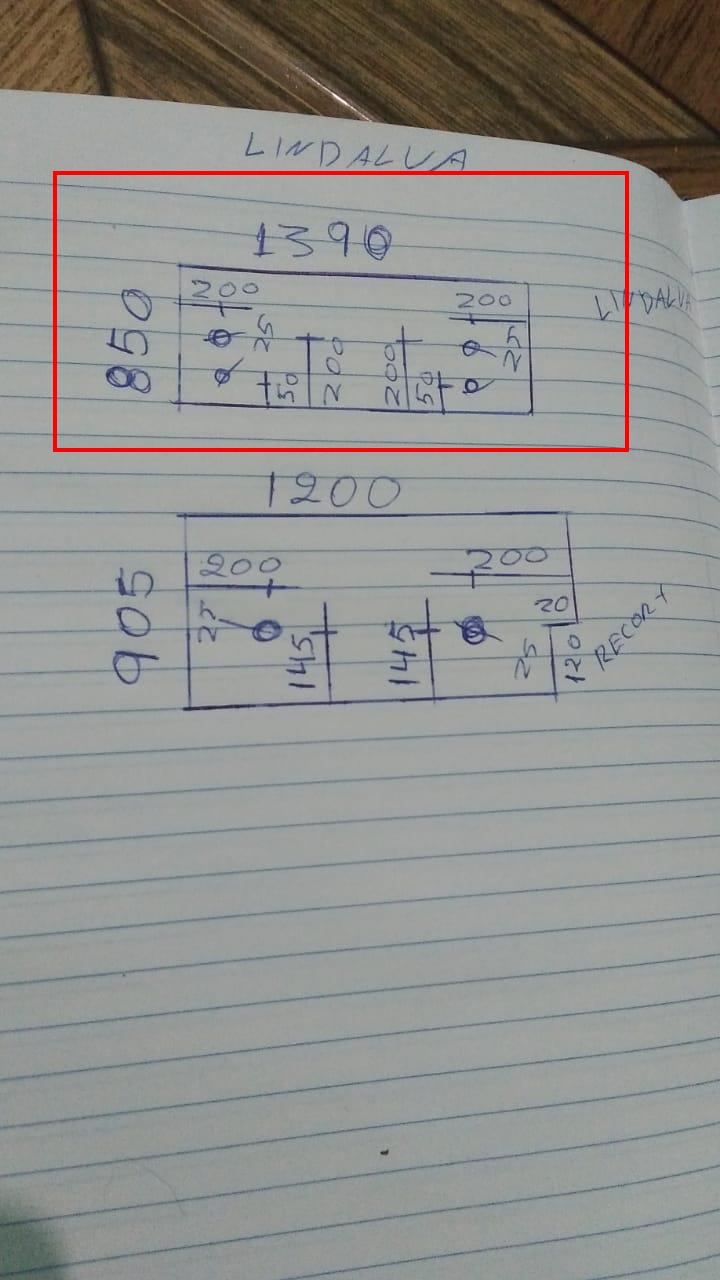 LINDALVA
1390
850
200 200
25 25
50 200 200 50
LINDALVA
1200
905
200 200
25 145 145 20
25 120 RECORT